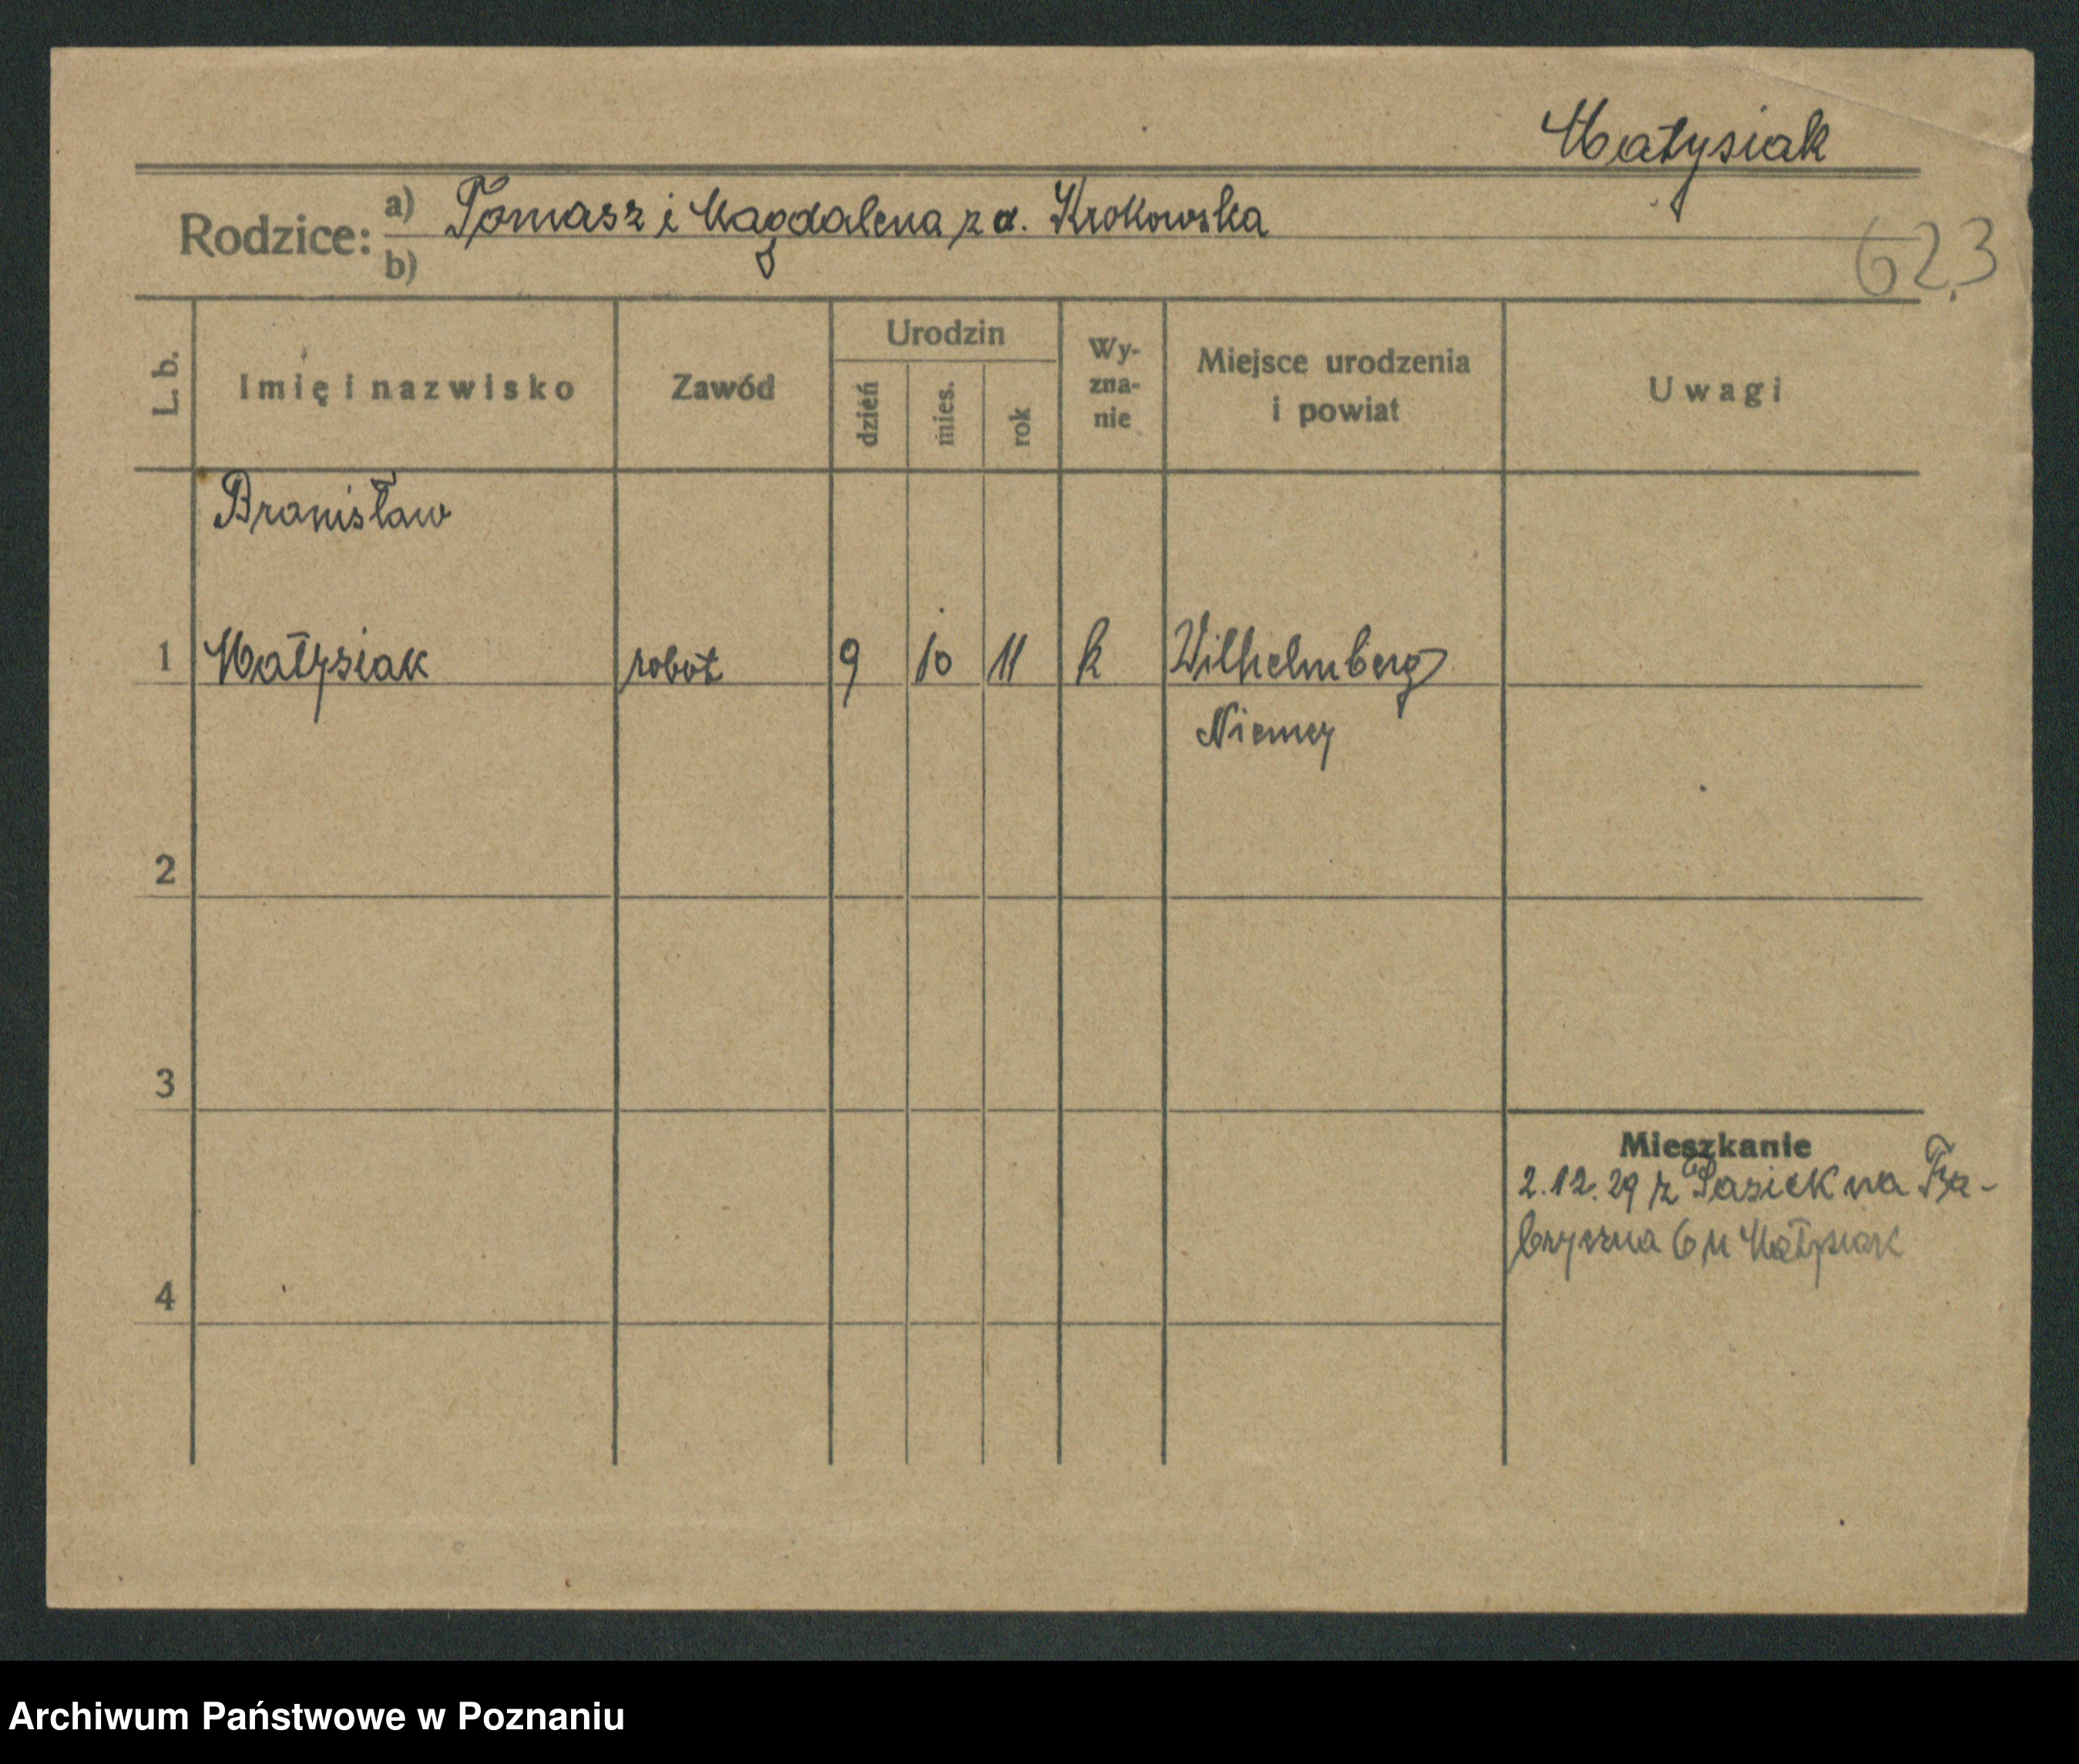 Matysiak
Rodzice: a) Tomasz i Magdalena z d. Krokowska
b)
623
L. b.
Imię i nazwisko
Zawód
Urodzin
dzień
mies.
rok
Wy-
zna-
nie
Miejsce urodzenia
i powiat
Uwagi
Bronisław
1 Matysiak robot 9 10 11 k Wilhelmberg
Niemcy
2
3
Mieszkanie
2.12.29 z Pasiek na Fa-
bryczna 6 u Matysiak
4
Archiwum Państwowe w Poznaniu